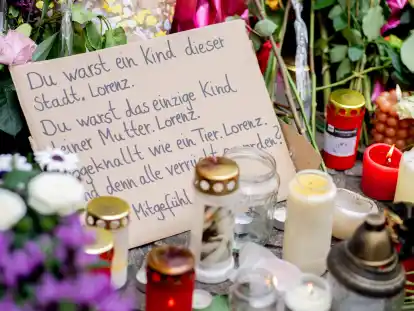 Du warst ein Kind dieser
Stadt, Lorenz.
Du warst das einzige Kind
deiner Mutter. Lorenz.
geknallt wie ein Tier. Lorenz.
denn alle verrückt
Mitgefühl